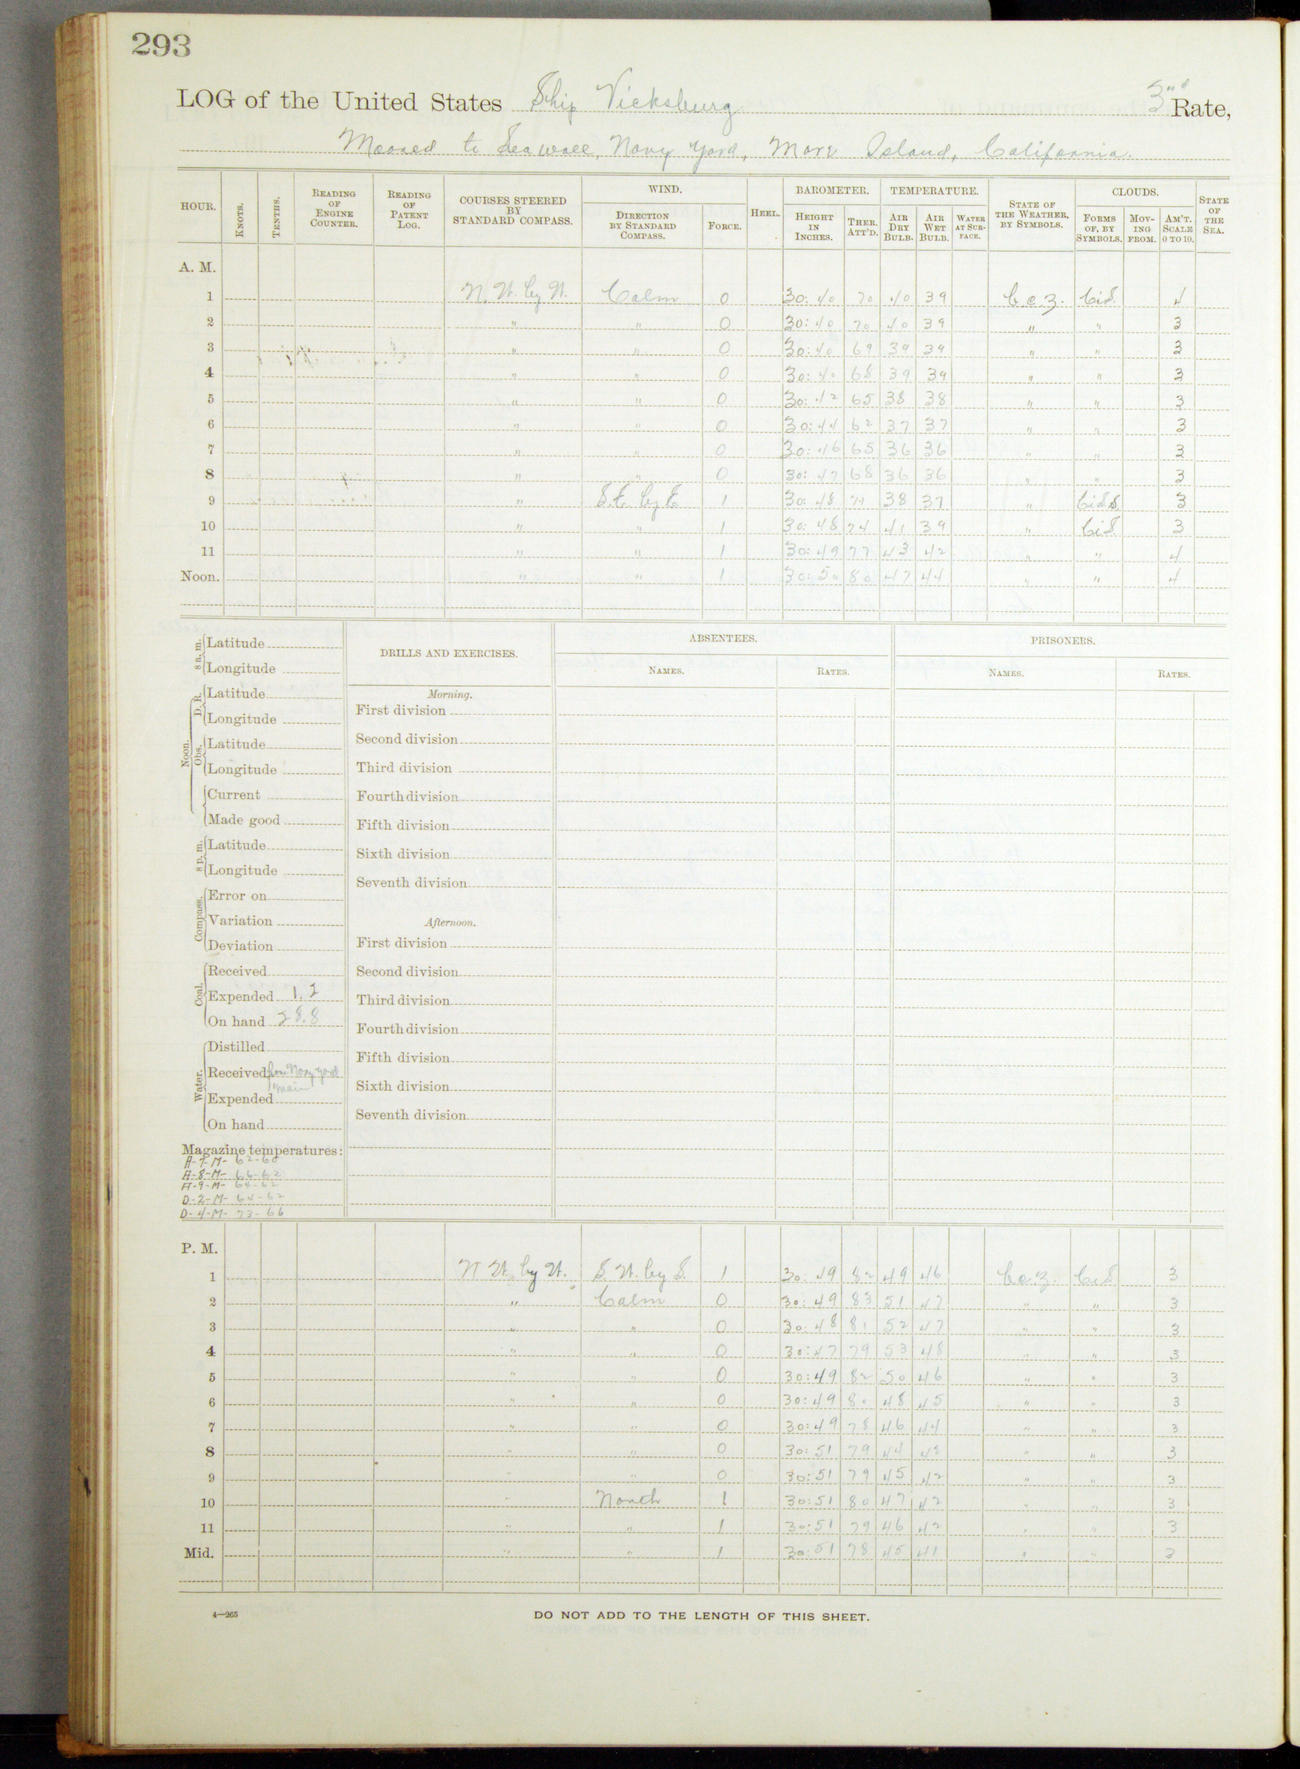 293
LOG of the United States Ship Vicksburg 3rd Rate,
Moored to Sea wall, Navy Yard, Mare Island, California.
HOUR. KNOTS. TENTHS. READING OF ENGINE COUNTER. READING OF PATENT LOG. COURSES STEERED BY STANDARD COMPASS. WIND. DIRECTION BY STANDARD COMPASS. FORCE. HEEL. BAROMETER. HEIGHT IN INCHES. THER. ATT'D. TEMPERATURE. AIR DRY BULB. AIR WET BULB. WATER AT SURFACE. STATE OF THE WEATHER, BY SYMBOLS. CLOUDS. FORMS OF, BY SYMBOLS. MOVING FROM. AM'T. SCALE 0 TO 10. STATE OF THE SEA.
A. M.
1 N.W. by W. Calm 0 30:40 70 40 39 b.c.z. Ci.S. 4
2 " " 0 30:40 70 40 39 " " 3
3 " " 0 30:40 69 39 39 " " 3
4 " " 0 30:40 68 39 39 " " 3
5 " " 0 30:42 65 38 38 " " 3
6 " " 0 30:44 62 37 37 " " 3
7 " " 0 30:46 65 36 36 " " 3
8 " " 0 30:47 68 36 36 " " 3
9 " S.E. by E. 1 30:48 71 38 37 " Ci.S.S. 3
10 " " 1 30:48 74 41 39 " Ci.S. 3
11 " " 1 30:49 77 43 42 " " 4
Noon. " " 1 30:50 80 47 44 " " 4
8 a. m. Latitude
Longitude
Noon. D. R. Latitude
Longitude
Obs. Latitude
Longitude
Current
Made good
8 p. m. Latitude
Longitude
Compass. Error on
Variation
Deviation
Coal. Received
Expended 1.2
On hand 28.8
Water. Distilled
Received from Navy Yard main
Expended
On hand
Magazine temperatures:
A-7-M- 62-60
A-8-M- 66-62
A-9-M- 64-62
D-2-M- 64-62
D-4-M- 73-66
DRILLS AND EXERCISES.
Morning.
First division
Second division
Third division
Fourth division
Fifth division
Sixth division
Seventh division
Afternoon.
First division
Second division
Third division
Fourth division
Fifth division
Sixth division
Seventh division
ABSENTEES.
NAMES. RATES.
PRISONERS.
NAMES. RATES.
P. M.
1 N W. by W. S. W. by S. 1 30:49 82 49 46 b.c.z. Ci.S 3
2 " Calm 0 30:49 83 51 47 " " 3
3 " " 0 30:48 81 52 47 " " 3
4 " " 0 30:47 79 53 48 " " 3
5 " " 0 30:49 82 50 46 " " 3
6 " " 0 30:49 80 48 45 " " 3
7 " " 0 30:49 78 46 44 " " 3
8 " " 0 30:51 79 44 42 " " 3
9 " " 0 30:51 79 45 42 " " 3
10 " North 1 30:51 80 47 42 " " 3
11 " " 1 30:51 79 46 42 " " 3
Mid. " " 1 30:51 78 45 41 " " 3
4—265
DO NOT ADD TO THE LENGTH OF THIS SHEET.